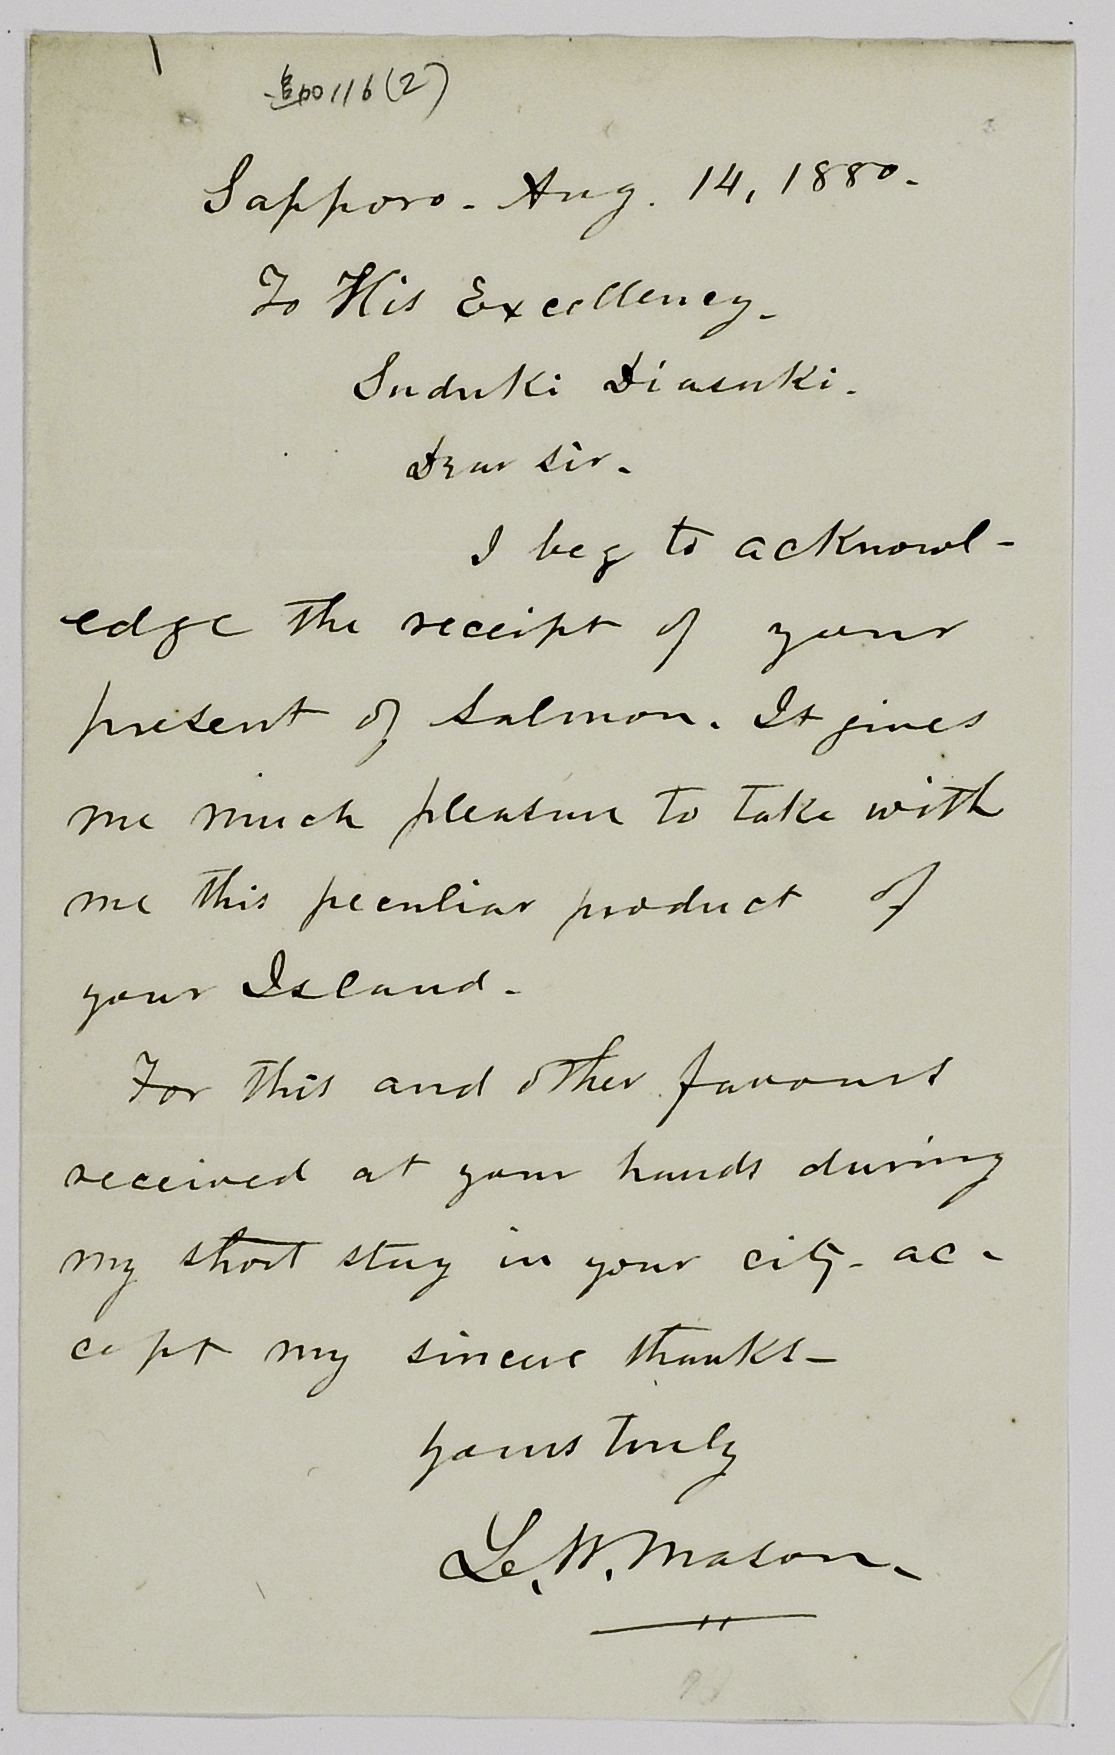 追加116(2)
Sapporo - Aug. 14, 1880.
To His Excellency -
Suduki Diasuki.
Dear Sir -
I beg to acknowl-
edge the receipt of your
present of Salmon. It gives
me much pleasure to take with
me this peculiar product of
your Island.
For this and other favours
received at your hands during
my short stay in your city - ac-
cept my sincere thanks -
Yours truly
L. W. Mason.